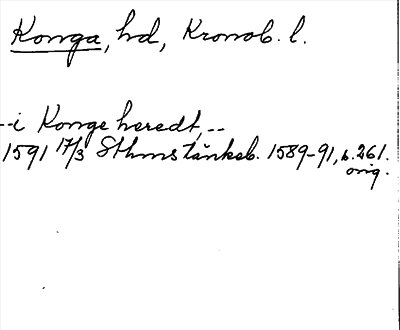 Konga, hd, Kronob. l.
--i Konge heredt, --
1591 17/3 Sthms tänkeb. 1589-91, s. 261.
orig.